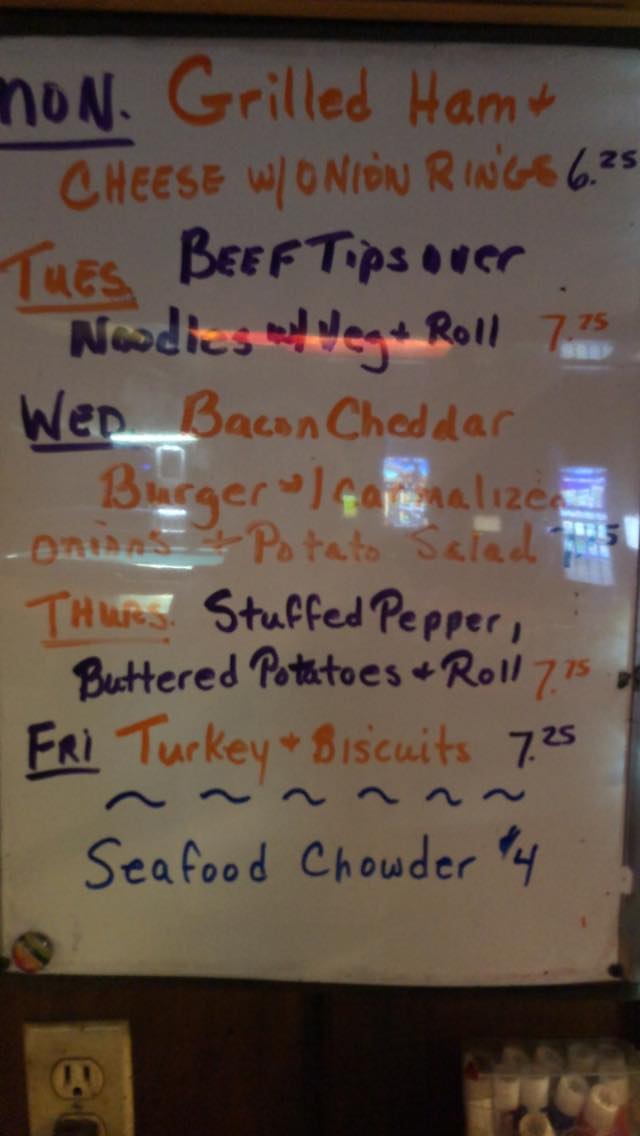 MON. Grilled Ham +
CHEESE W/ ONION RINGS 6.25
TUES. BEEF Tips over
Noodles w/ Veg + Roll 7.75
WED. Bacon Cheddar
Burger w/ Carmalized
onions + Potato Salad
THURS. Stuffed Pepper,
Buttered Potatoes + Roll 7.75
FRI Turkey + Biscuits 7.25
~ ~ ~ ~ ~ ~
Seafood Chowder $4